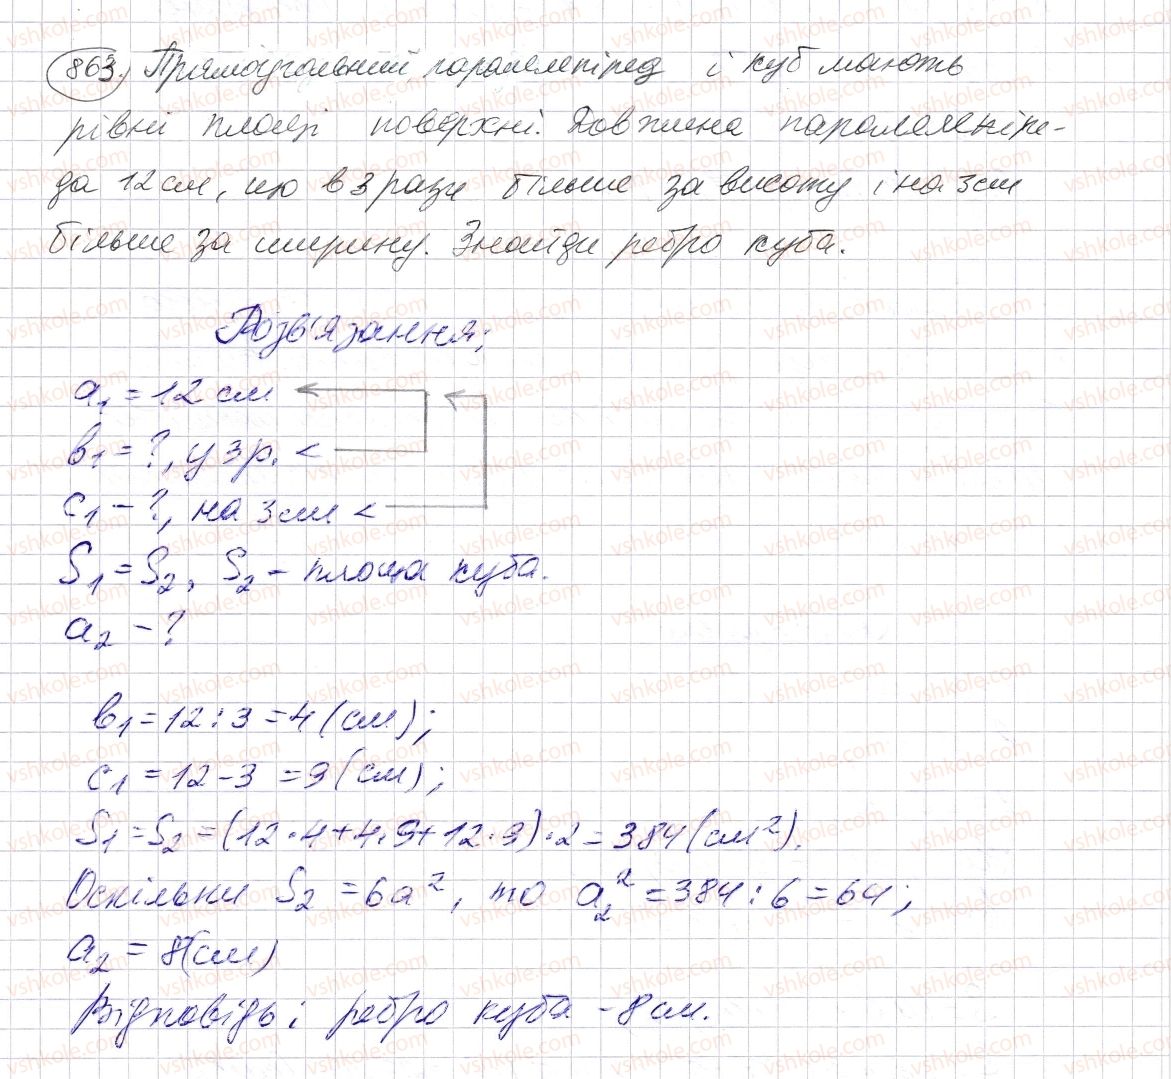 863. Прямокутний паралелепіпед і куб мають
рівні площі поверхні. Довжина паралелепіпе-
да 12 см, що в 3 рази більше за висоту і на 3 см
більше за ширину. Знайди ребро куба.
Розв'язання:
a₁ = 12 см
в₁ = ?, у 3 р. <
c₁ – ?, на 3 см <
S₁ = S₂, S₂ – площа куба.
a₂ – ?
в₁ = 12 : 3 = 4 (см);
c₁ = 12 - 3 = 9 (см);
S₁ = S₂ = (12 · 4 + 4 · 9 + 12 · 9) · 2 = 384 (см²).
Оскільки S₂ = 6a², то a₂² = 384 : 6 = 64;
a₂ = 8 (см)
Відповідь: ребро куба – 8 см.